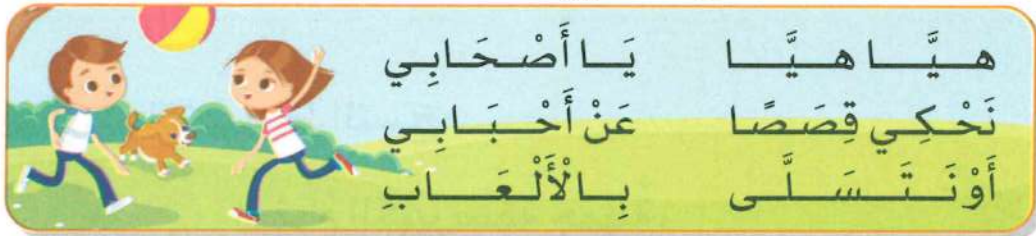 هيَّا هيَّا يَا أَصْحَابِي
نَحْكِي قِصَصًا عَنْ أَحْبَابِي
أَوْ نَتَسَلَّى بِالْأَلْعَابِ